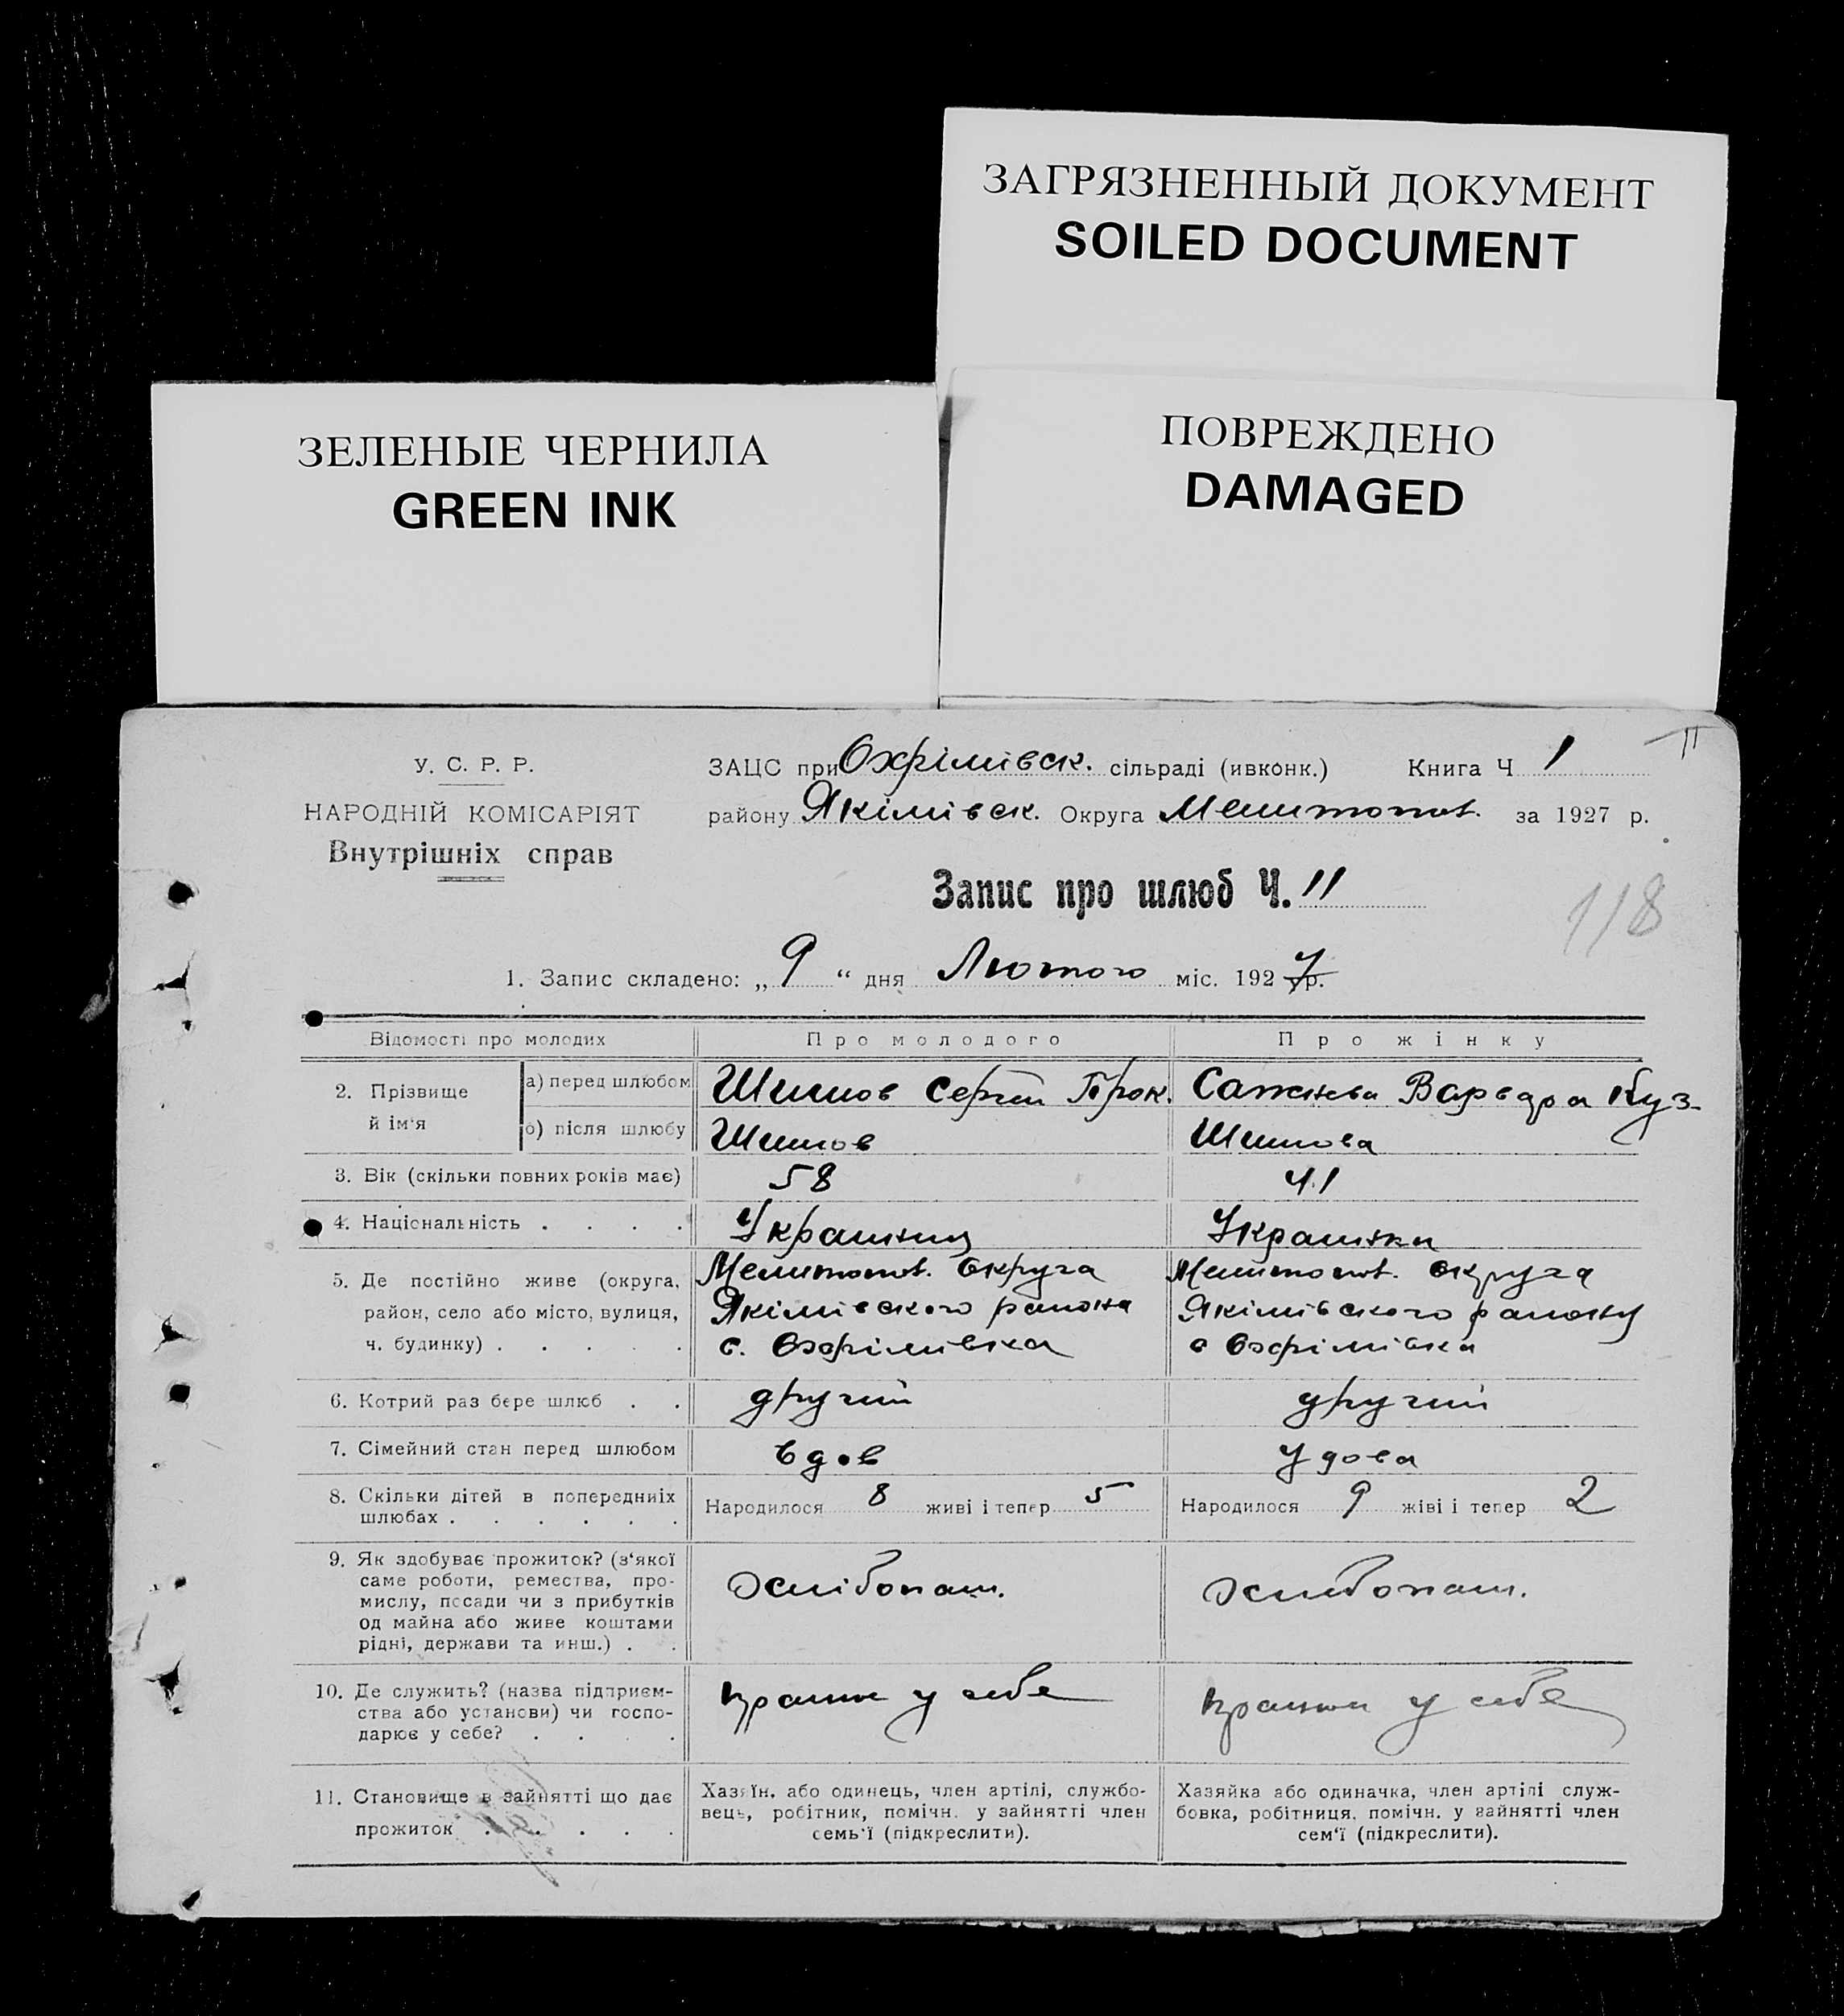 ЗАГРЯЗНЕННЫЙ ДОКУМЕНТ
SOILED DOCUMENT
ЗЕЛЕНЫЕ ЧЕРНИЛА
GREEN INK
ПОВРЕЖДЕНО
DAMAGED
У. С. Р. Р.
НАРОДНІЙ КОМІСАРІЯТ
Внутрішніх справ
ЗАЦС при Охрімівск. сільраді (ивконк.) Книга Ч 1
району Якімівск. Округа Мелитопол. за 1927 р.
Запис про шлюб Ч. 11
118
1. Запис складено: „ 9 “ дня Лютого міс. 1927 р.
Відомості про молодих Про молодого Про жінку
2. Прізвище й ім'я
а) перед шлюбом Шишов Сергій Прок. Варвара Куз.
б) після шлюбу Шишов Шишова
3. Вік (скільки повних років має) 58 41
4. Національність . . . . Українець Українка
5. Де постійно живе (округа, Мелитопол. округа Мелитопол. округа
район, село або місто, вулиця, Якімівского района Якімівского району
ч. будинку) . . . . . с. Охрімівка с Охрімівка
6. Котрий раз бере шлюб . . другий другий
7. Сімейний стан перед шлюбом вдов удова
8. Скільки дітей в попередниіх Народилося 8 живі і тепер 5 Народилося 9 жіві і тепер 2
шлюбах . . . . . .
9. Як здобуває прожиток? (з‘якої
саме роботи, ремества, про-
мислу, посади чи з прибутків хлібопаш. хлібопаш.
од майна або живе коштами
рідні, держави та инш.) . .
10. Де служить? (назва підприєм-
ства або установи) чи госпо- у себе у себе
дарює у себе? . . . .
11. Становище в зайнятті що дає
прожиток . . . . . .
Хазяїн, або одинець, член артілі, службо-
вець, робітник, помічн. у зайнятті член
семь‘ї (підкреслити).
Хазяйка або одиначка, член артілі служ-
бовка, робітниця, помічн. у зайнятті член
сем‘ї (підкреслити).